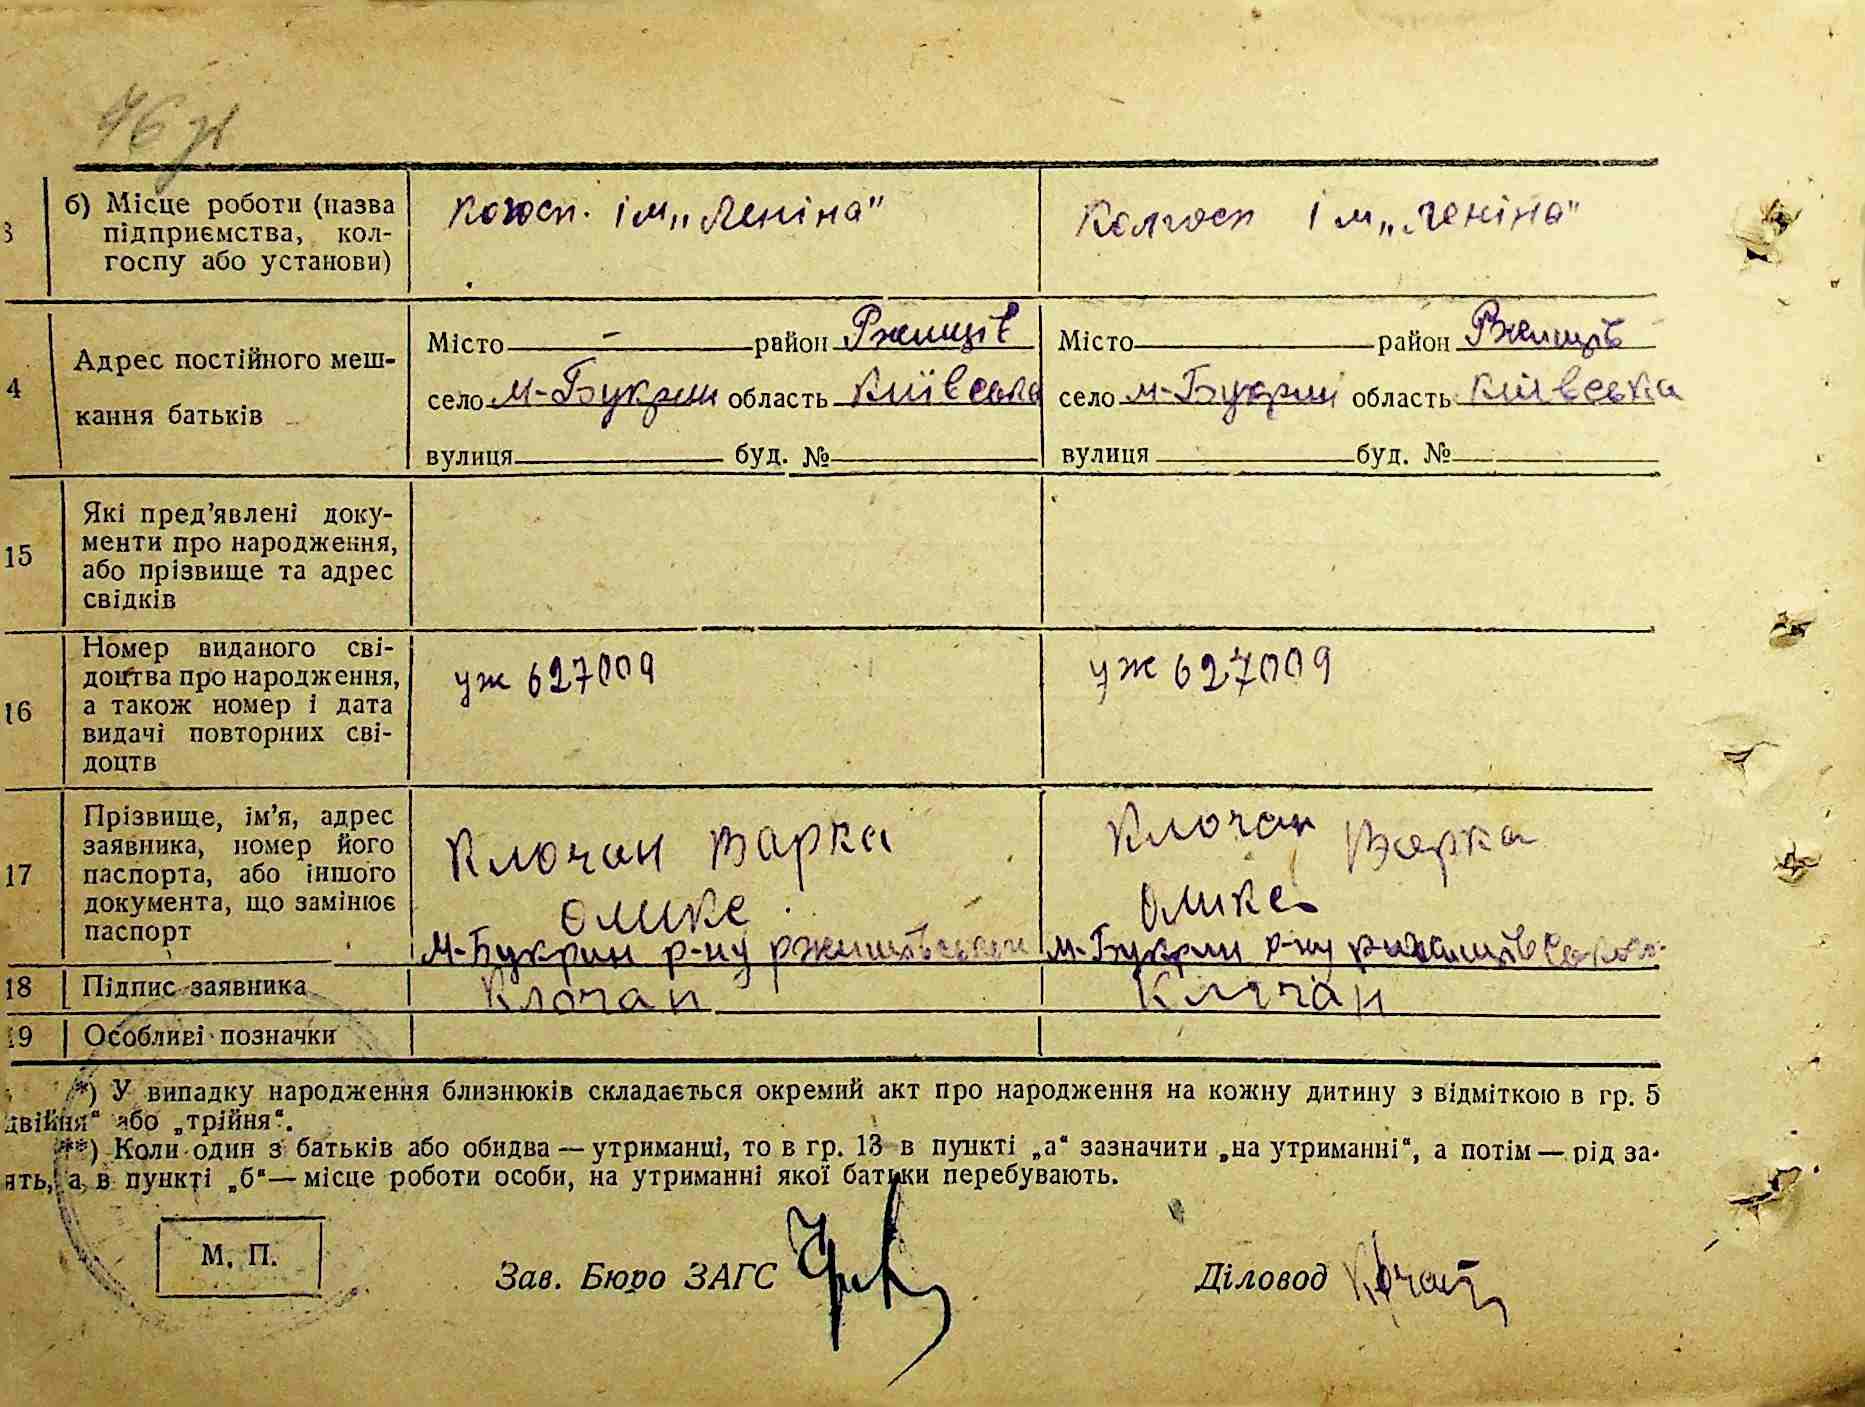 46
3 б) Місце роботи (назва підприємства, кол-
госпу або установи)
Когосп. ім „Леніна" Колгосп ім „Леніна"
4 Адрес постійного меш-
кання батьків
Місто - район Ржищів Місто район Ржищів
село М-Букрин область Київська село М-Букрин область Київська
вулиця буд. № вулиця буд. №
15 Які пред'явлені доку-
менти про народження,
або прізвище та адрес
свідків
16 Номер виданого сві-
доцтва про народження,
а також номер і дата
видачі повторних сві-
доцтв
уж 627009 уж 627009
17 Прізвище, ім'я, адрес
заявника, номер його
паспорта, або іншого
документа, що замінює
паспорт
Клочан Варка Клочан Варка
Олике Олике
М-Букрин р-ну М-Букрин р-ну
18 Підпис заявника Клочан Клочан
19 Особливі позначки
*) У випадку народження близнюків складається окремий акт про народження на кожну дитину з відміткою в гр. 5
двійня" або „трійня".
**) Коли один з батьків або обидва — утриманці, то в гр. 13 в пункті „а" зазначити „на утриманні", а потім — рід за-
ять, а в пункті „б" — місце роботи особи, на утриманні якої батьки перебувають.
М. П.
Зав. Бюро ЗАГС Діловод